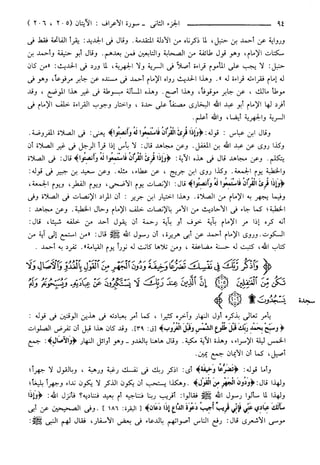 ٩٤ الجزء الثاني - سورة الأعراف : الآيتان (٢٠٥ ، ٢٠٦)
ورواية عن أحمد بن حنبل، لما ذكرناه من الأدلة المتقدمة. وقال في الجديد: يقرأ الفاتحة فقط في
سكتات الإمام، وهو قول طائفة من الصحابة والتابعين فمن بعدهم. وقال أبو حنيفة وأحمد بن
حنبل: لا يجب على المأموم قراءة أصلاً في السرية ولا الجهرية، لما ورد في الحديث: «من كان
له إمام فقراءته قراءة له». وهذا الحديث رواه الإمام أحمد في مسنده عن جابر مرفوعاً، وهو في
موطأ مالك، عن جابر موقوفاً، وهذا أصح. وهذه المسألة مبسوطة في غير هذا الموضع، وقد
أفرد لها الإمام أبو عبد الله البخاري مصنفاً على حدة، واختار وجوب القراءة خلف الإمام في
السرية والجهرية أيضاً، والله أعلم.
وقال ابن عباس : قوله: ﴿وَإِذَا قُرِئَ الْقُرْآنُ فَاسْتَمِعُوا لَهُ وَأَنصِتُوا﴾ يعني: في الصلاة المفروضة.
وكذا روي عن عبد الله بن المغفل. وعن مجاهد قال: لا بأس إذا قرأ الرجل في غير الصلاة أن
يتكلم. وعن مجاهد قال في هذه الآية: ﴿وَإِذَا قُرِئَ الْقُرْآنُ فَاسْتَمِعُوا لَهُ وَأَنصِتُوا﴾ قال: في الصلاة
والخطبة يوم الجمعة. وكذا روى ابن جريج ، عن عطاء، مثله. وعن سعيد بن جبير في قوله:
﴿وَإِذَا قُرِئَ الْقُرْآنُ فَاسْتَمِعُوا لَهُ وَأَنصِتُوا﴾ قال: الإنصات يوم الأضحى، ويوم الفطر، ويوم الجمعة،
وفيما يجهر به الإمام من الصلاة. وهذا اختيار ابن جرير : أن المراد الإنصات في الصلاة وفي
الخطبة؛ كما جاء في الأحاديث من الأمر بالإنصات خلف الإمام وحال الخطبة. وعن مجاهد:
أنه كره إذا مر الإمام بآية خوف أو بآية رحمة أن يقول أحد من خلفه شيئاً، قال:
السكوت. وروى الإمام أحمد عن أبي هريرة، أن رسول الله ﷺ قال: «من استمع إلى آية من
كتاب الله، كتبت له حسنة مضاعفة ، ومن تلاها كانت له نوراً يوم القيامة». تفرد به أحمد .
وَاذْكُر رَّبَّكَ فِي نَفْسِكَ تَضَرُّعًا وَخِيفَةً وَدُونَ الْجَهْرِ مِنَ الْقَوْلِ بِالْغُدُوِّ وَالْآصَالِ وَلَا
تَكُن مِّنَ الْغَافِلِينَ ﴿٢٠٥﴾ إِنَّ الَّذِينَ عِندَ رَبِّكَ لَا يَسْتَكْبِرُونَ عَنْ عِبَادَتِهِ وَيُسَبِّحُونَهُ وَلَهُ
يَسْجُدُونَ ﴿٢٠٦﴾
سجدة
يأمر تعالى بذكره أول النهار وآخره كثيرا ، كما أمر بعبادته في هذين الوقتين في قوله :
﴿وَسَبِّحْ بِحَمْدِ رَبِّكَ قَبْلَ طُلُوعِ الشَّمْسِ وَقَبْلَ الْغُرُوبِ﴾ [ق: ٣٩]. وقد كان هذا قبل أن تفرض الصلوات
الخمس ليلة الإسراء، وهذه الآية مكية. وقال هاهنا بالغدو - وهو أوائل النهار ﴿وَالْآصَالِ﴾: جمع
أصيل، كما أن الأيمان جمع يمين.
وأما قوله: ﴿تَضَرُّعًا وَخِيفَةً﴾ أي: اذكر ربك في نفسك رغبة ورهبة ، وبالقول لا جهراً؛
ولهذا قال: ﴿وَدُونَ الْجَهْرِ مِنَ الْقَوْلِ﴾. وهكذا يستحب أن يكون الذكر لا يكون نداء وجهراً بليغاً؛
ولهذا لما سألوا رسول الله ﷺ فقالوا: أقريب ربنا فنناجيه أم بعيد فنناديه؟ فأنزل الله: ﴿وَإِذَا
سَأَلَكَ عِبَادِي عَنِّي فَإِنِّي قَرِيبٌ أُجِيبُ دَعْوَةَ الدَّاعِ إِذَا دَعَانِ﴾ [البقرة: ١٨٦] . وفي الصحيحين عن أبي
موسى الأشعري قال: رفع الناس أصواتهم بالدعاء في بعض الأسفار، فقال لهم النبي ﷺ: